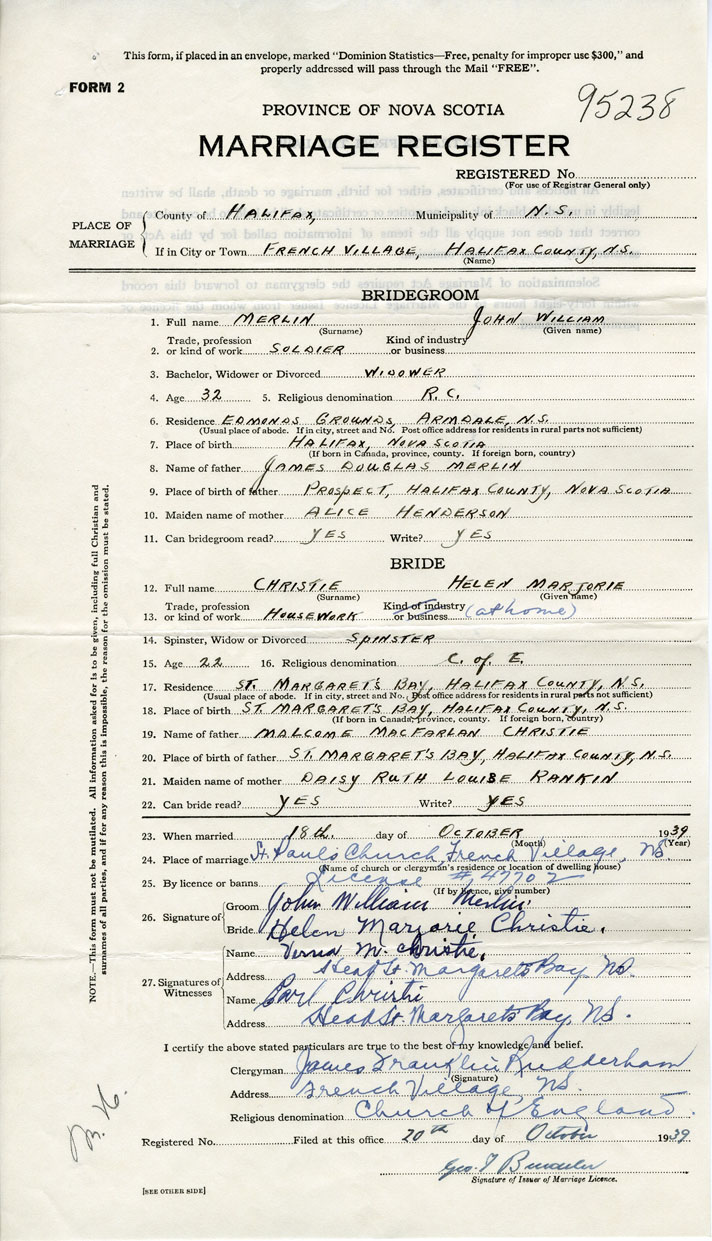 This form, if placed in an envelope, marked "Dominion Statistics—Free, penalty for improper use $300," and
properly addressed will pass through the Mail "FREE".
FORM 2
95238
PROVINCE OF NOVA SCOTIA
MARRIAGE REGISTER
REGISTERED No.
(For use of Registrar General only)
PLACE OF MARRIAGE
County of HALIFAX, Municipality of N.S.
If in City or Town FRENCH VILLAGE, HALIFAX COUNTY, N.S.
(Name)
BRIDEGROOM
1. Full name MERLIN JOHN WILLIAM
(Surname) (Given name)
2. Trade, profession or kind of work SOLDIER Kind of industry or business
3. Bachelor, Widower or Divorced WIDOWER
4. Age 32 5. Religious denomination R.C.
6. Residence EDMONDS GROUNDS, ARMDALE, N.S.
(Usual place of abode. If in city, street and No. Post office address for residents in rural parts not sufficient)
7. Place of birth HALIFAX, NOVA SCOTIA
(If born in Canada, province, county. If foreign born, country)
8. Name of father JAMES DOUGLAS MERLIN
9. Place of birth of father PROSPECT, HALIFAX COUNTY, NOVA SCOTIA
10. Maiden name of mother ALICE HENDERSON
11. Can bridegroom read? YES Write? YES
BRIDE
12. Full name CHRISTIE HELEN MARJORIE
(Surname) (Given name)
13. Trade, profession or kind of work HOUSEWORK Kind of industry or business (at home)
14. Spinster, Widow or Divorced SPINSTER
15. Age 22 16. Religious denomination C. of E.
17. Residence ST. MARGARET'S BAY, HALIFAX COUNTY, N.S.
(Usual place of abode. If in city, street and No. Post office address for residents in rural parts not sufficient)
18. Place of birth ST. MARGARET'S BAY, HALIFAX COUNTY, N.S.
(If born in Canada, province, county. If foreign born, country)
19. Name of father MALCOME MACFARLAN CHRISTIE
20. Place of birth of father ST. MARGARET'S BAY, HALIFAX COUNTY, N.S.
21. Maiden name of mother DAISY RUTH LOUISE RANKIN
22. Can bride read? YES Write? YES
23. When married 18th day of OCTOBER 1939
(Month) (Year)
24. Place of marriage St. Pauls Church, French Village, NS
(Name of church or clergyman's residence or location of dwelling house)
25. By licence or banns License # 47702
(If by licence, give number)
26. Signature of
Groom John William Merlin.
Bride Helen Marjorie Christie.
27. Signatures of Witnesses
Name Verna M. Christie,
Address Head St. Margarets Bay NS.
Name Carl Christie
Address Head St. Margarets Bay, NS.
I certify the above stated particulars are true to the best of my knowledge and belief.
Clergyman James Franklin Rudderham
(Signature)
Address French Village NS.
Religious denomination Church of England.
Registered No. Filed at this office 20th day of October 1939
Geo. T
Signature of Issuer of Marriage Licence.
[SEE OTHER SIDE]
NOTE.—This form must not be mutilated. All information asked for is to be given, including full Christian and
surnames of all parties, and if for any reason this is impossible, the reason for the omission must be stated.